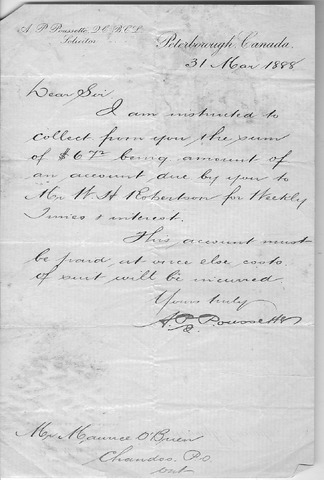 A. P. Poussette, Q.C., B.C.L.
Solicitor
Peterborough, Canada.
31 Mar 1888
Dear Sir
I am instructed to
collect from you the sum
of $6 72 being amount of
an account due by you to
Mr W. H. Robertson for Weekly
Times & interest.
This account must
be paid at once else costs
of suit will be incurred
Yours truly
A. P. Poussette
Mr Maurice O'Brien
Chandos P.O
Ont